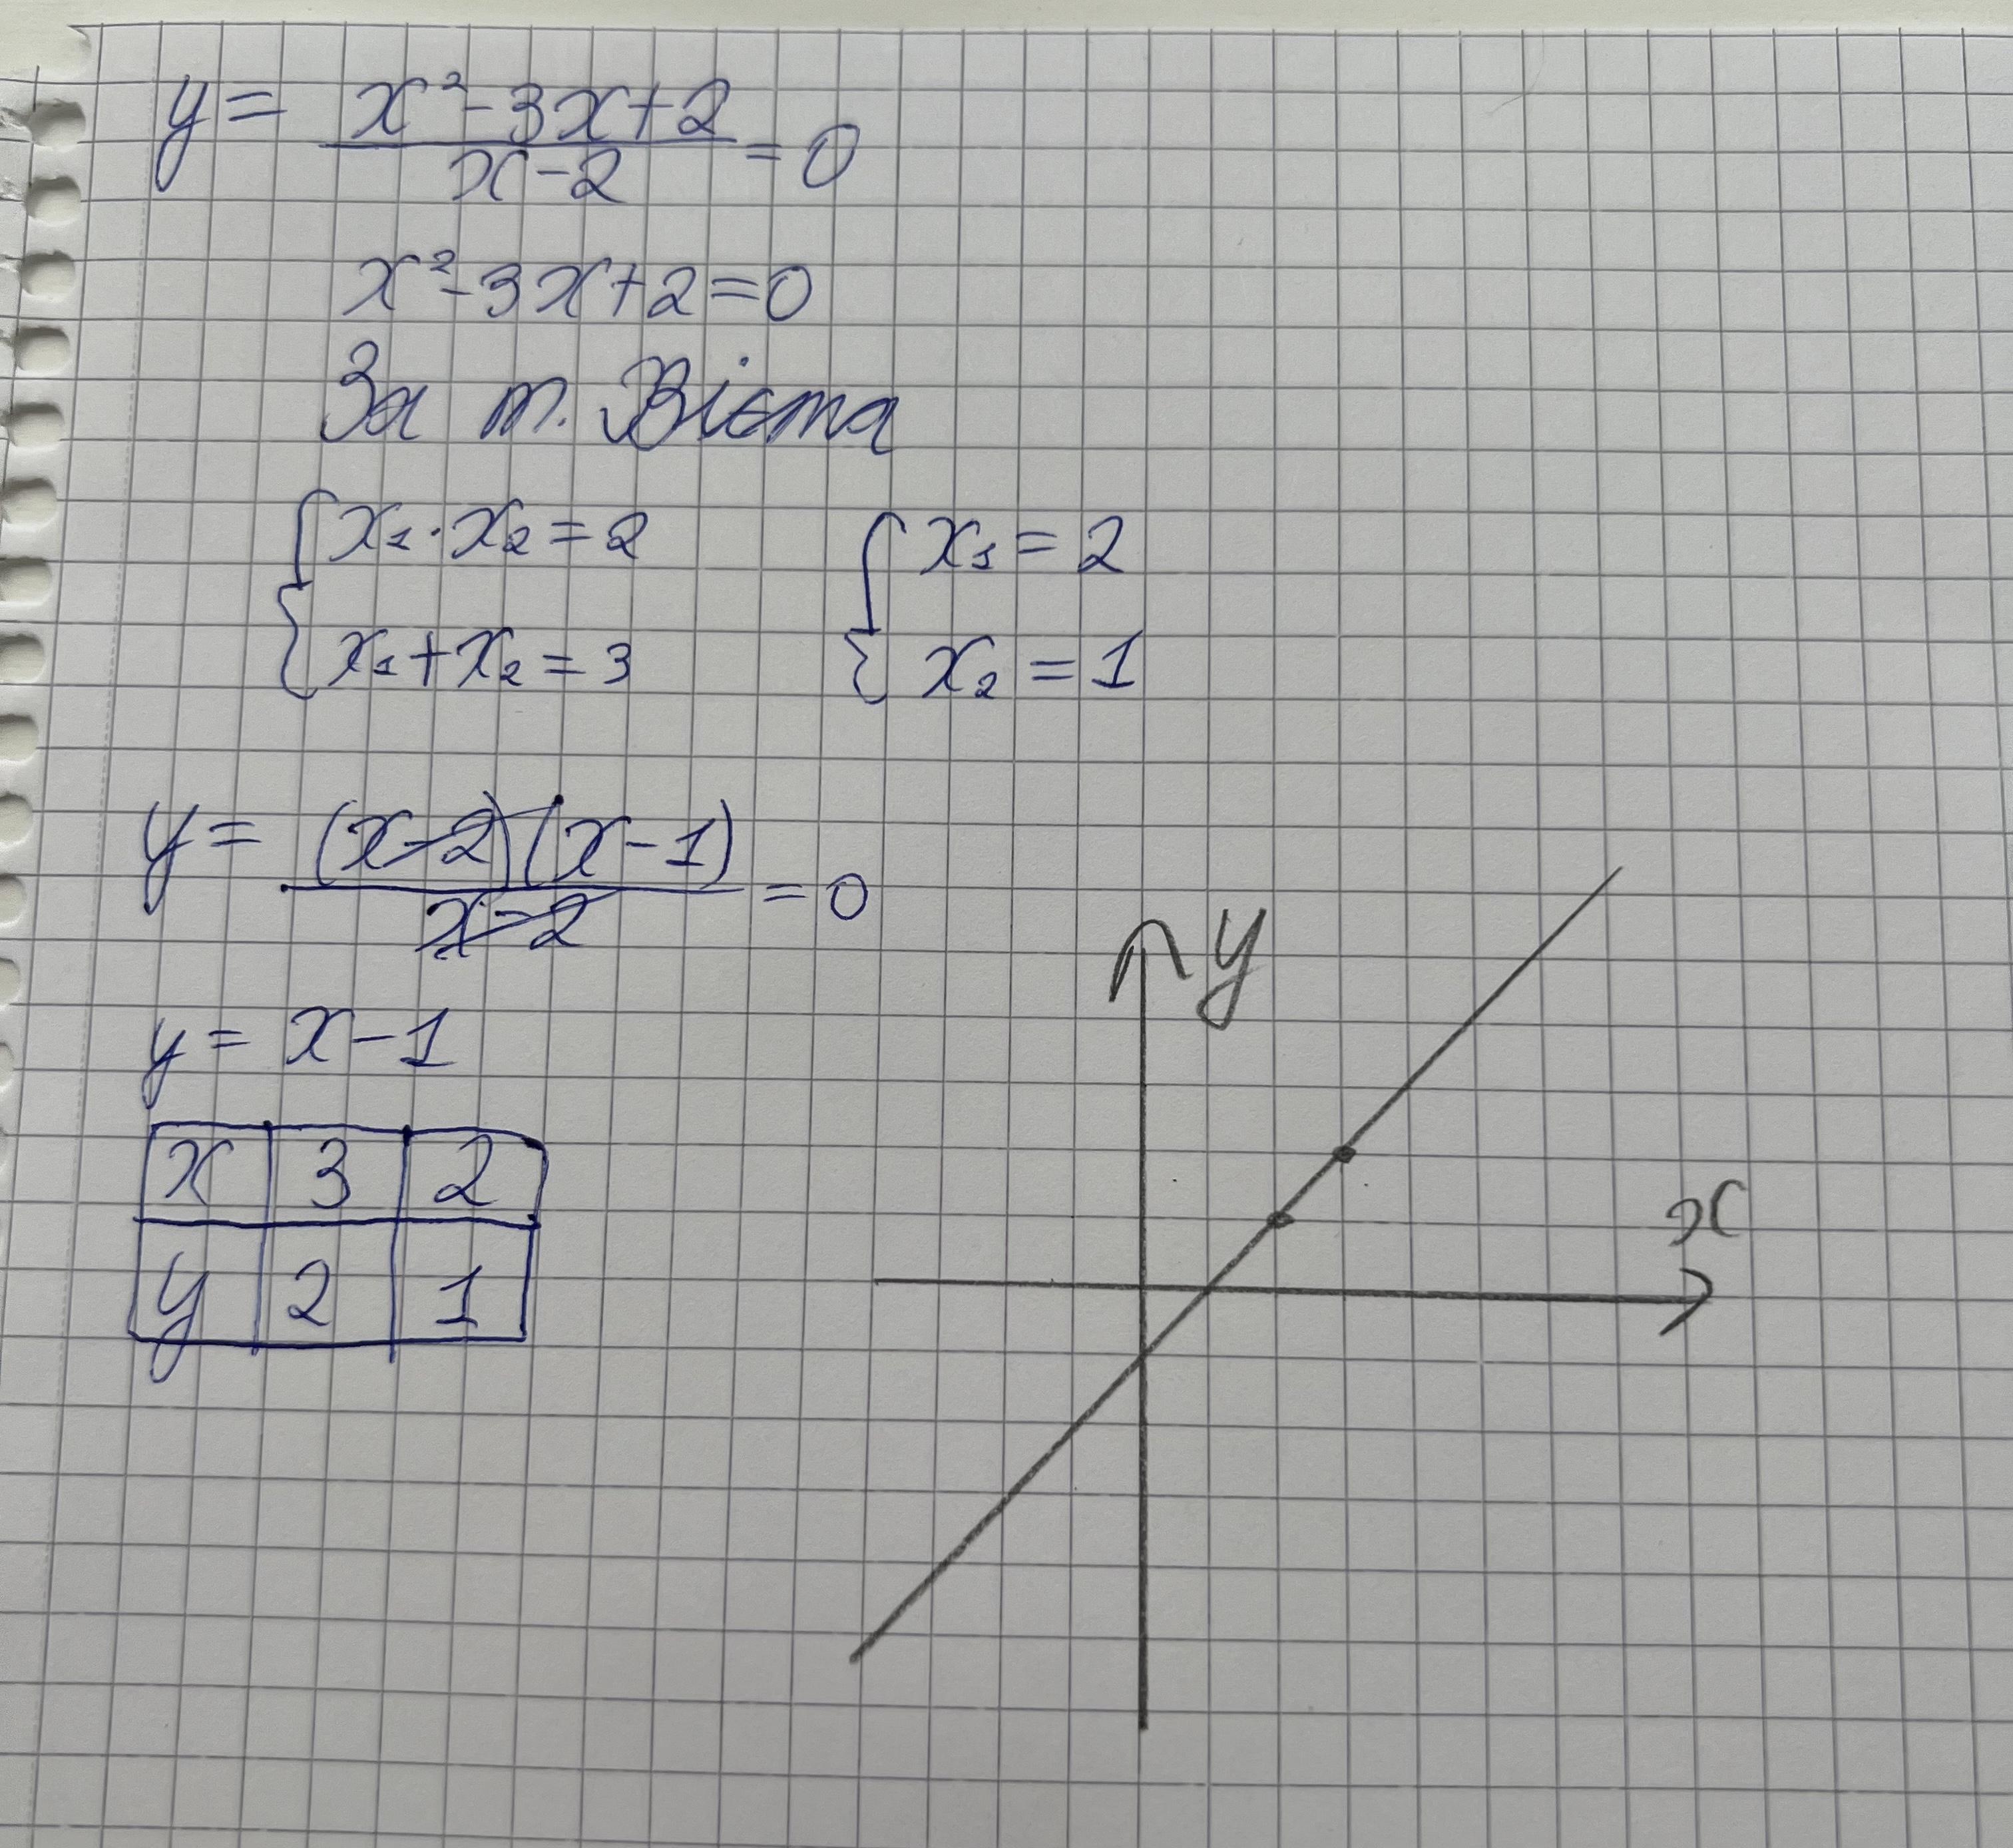 y = (x² - 3x + 2)/(x - 2) = 0
x² - 3x + 2 = 0
За т. Вієта
{ x₁ · x₂ = 2 { x₁ = 2
{ x₁ + x₂ = 3 { x₂ = 1
y = ((x - 2)(x - 1))/(x - 2) = 0
y = x - 1
x 3 2
y 2 1
y
x